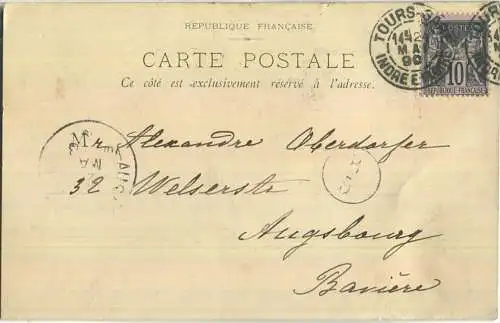 RÉPUBLIQUE FRANÇAISE
CARTE POSTALE
Ce côté est exclusivement réservé à l'adresse.
TOURS
MAI
INDRE ET
POSTE
10
RÉPUBLIQUE FRANÇAISE
Mr. Alexandre Oberdorfer
32 Welserstr
Augsbourg
Bavière